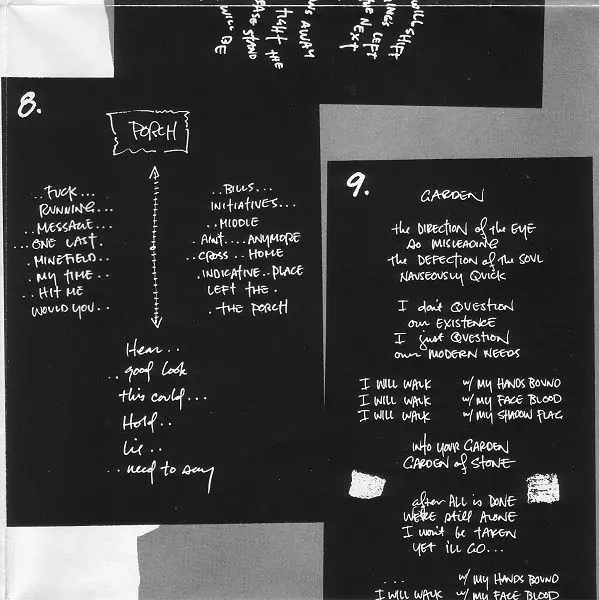 WILL SHIFT
NGS LEFT
HE NEXT
NS AWAY
TIGHT THE
EASE STAND
WILL BE
8.
PORCH
..FUCK...
RUNNING...
..MESSAGE...
...ONE LAST.
.MINEFIELD..
..MY TIME..
..HIT ME
WOULD YOU..
..BILLS...
INITIATIVES...
..MIDDLE
.AIN'T....ANYMORE
..CROSS..HOME
.INDICATIVE..PLACE
LEFT THE.
.THE PORCH
Hear..
..good look
this could...
Hold..
Lie..
..need to say
9.
GARDEN
the DIRECTION of the EYE
so MISLEADING
the DEFECTION of the SOUL
NAUSEOUSLY QUICK
I don't QUESTION
our EXISTENCE
I just QUESTION
our MODERN NEEDS
I WILL WALK w/ MY HANDS BOUND
I WILL WALK w/ MY FACE BLOOD
I WILL WALK w/ MY SHADOW FLAG
into YOUR GARDEN
GARDEN of STONE
after ALL is DONE
WE'RE still ALONE
I won't be TAKEN
YET i'll GO...
... w/ MY HANDS BOUND
I WILL WALK w/ MY FACE BLOOD